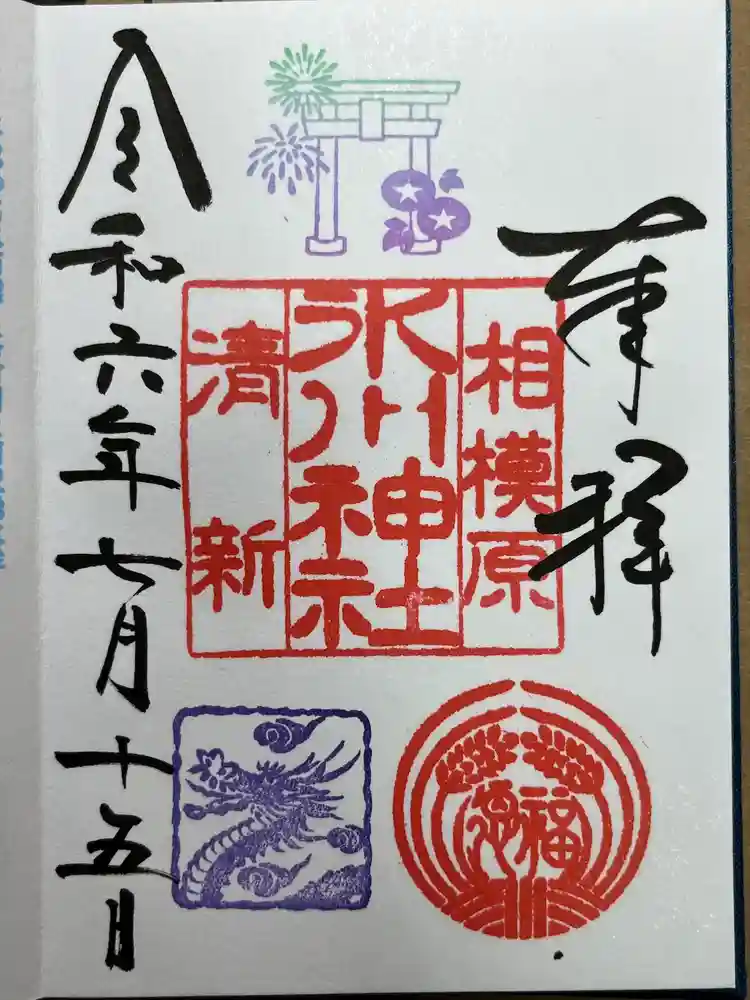 奉拝
相模原
氷川神社
清新
令和六年七月十五日
福